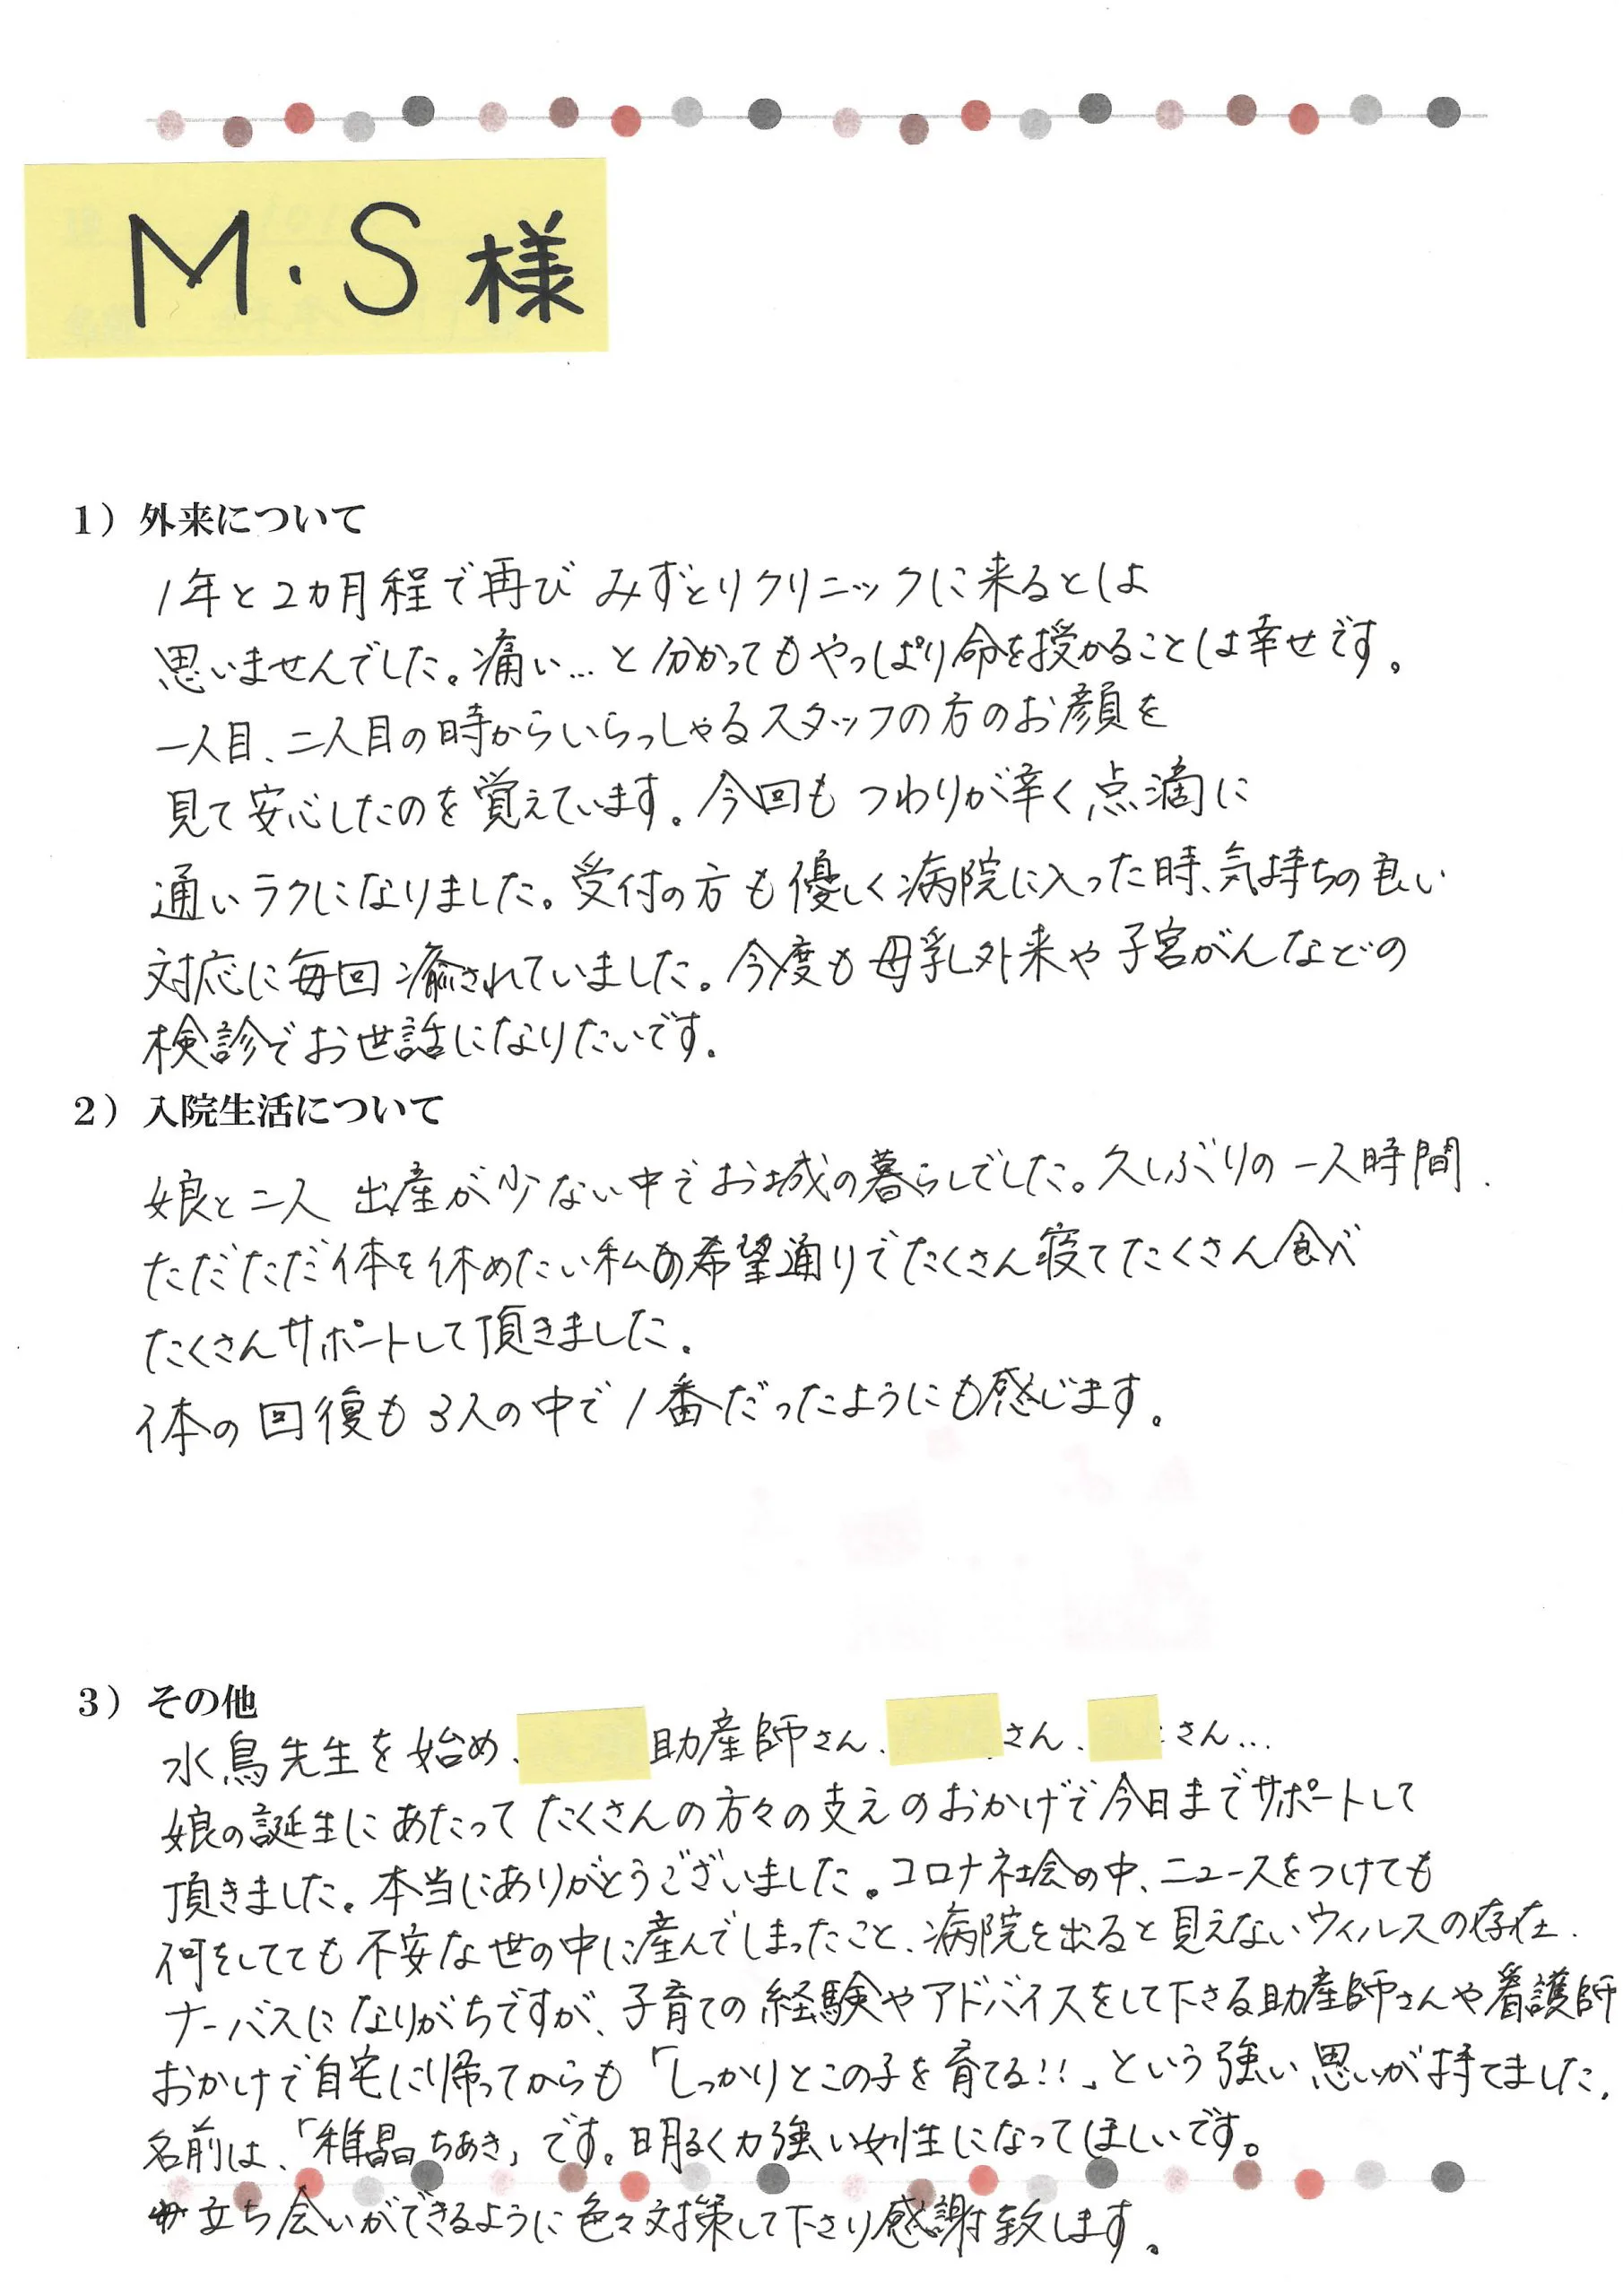 M・S 様
1）外来について
1年と2カ月程で再び みずとりクリニックに来るとは
思いませんでした。痛い…と分かってもやっぱり命を授かることは幸せです。
一人目、二人目の時からいらっしゃるスタッフの方のお顔を
見て安心したのを覚えています。今回も つわりが辛く点滴に
通いラクになりました。受付の方も優しく病院に入った時、気持ちの良い
対応に毎回癒されていました。今度も母乳外来や子宮がんなどの
検診でお世話になりたいです。
2）入院生活について
娘と二人 出産が少ない中でお城の暮らしでした。久しぶりの一人時間、
ただただ体を休めたい私の希望通りでたくさん寝てたくさん食べ
たくさんサポートして頂きました。
体の回復も3人の中で1番だったようにも感じます。
3）その他
水鳥先生を始め、助産師さん、さん、さん…
娘の誕生にあたって たくさんの方々の支えのおかげで今日までサポートして
頂きました。本当にありがとうございました。コロナ社会の中、ニュースをつけても
何をしてても不安な世の中に産んでしまったこと、病院を出ると見えないウィルスの存在、
ナーバスになりがちですが、子育ての経験やアドバイスをして下さる助産師さんや看護師
おかげで自宅に帰ってからも「しっかりとこの子を育てる!!」という強い思いが持てました。
名前は、「稚晶 ちあき」です。明るく力強い女性になってほしいです。
立ち会いができるように色々対策して下さり感謝致します。